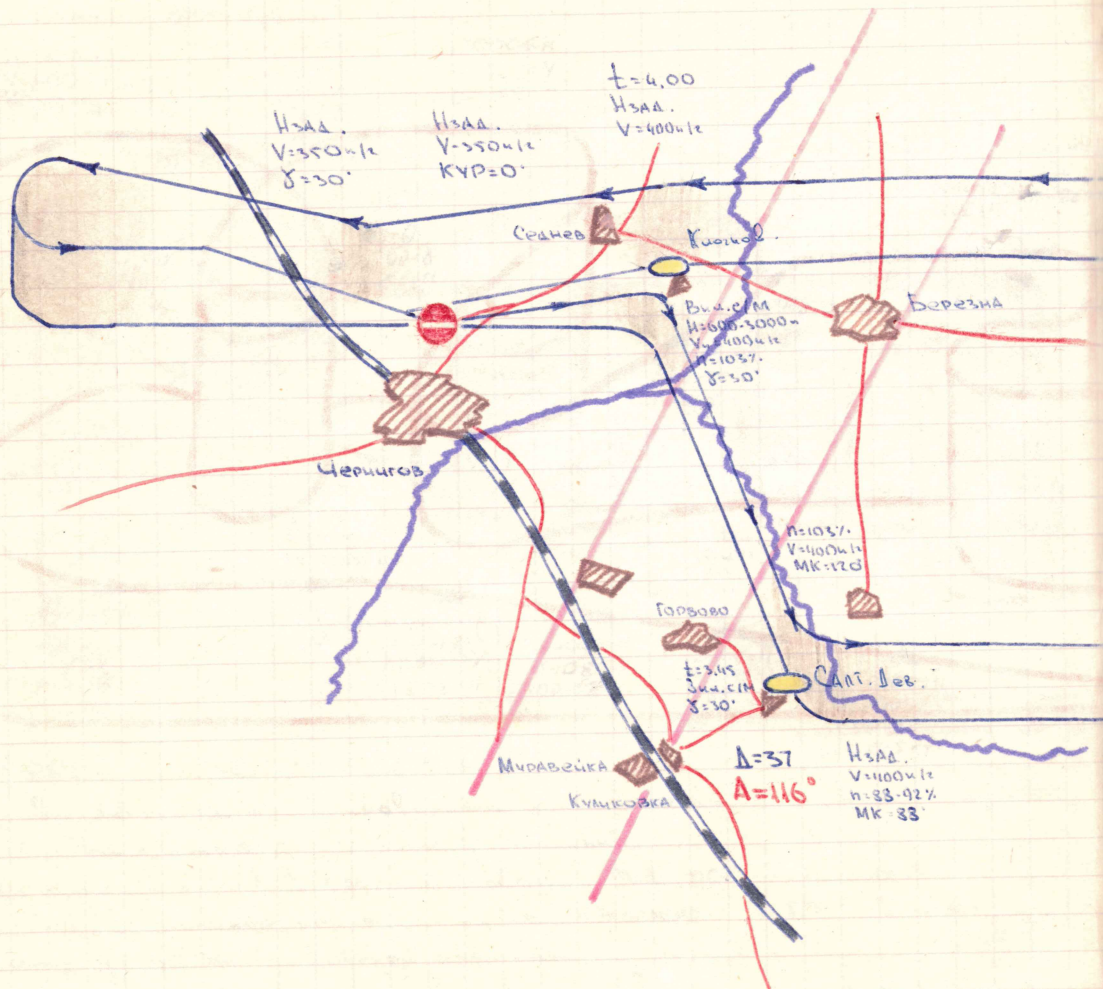 Hзад.
V=350к/г
γ=30°
Hзад.
V=350к/г
КУР=0°
t=4,00
Hзад.
V=400к/г
Седнев
Клочков.
Вып. С/М
H=600-3000м
n=103%
γ=30°
Березна
Чернигов
n=103%
V=400к/г
МК=120°
Горбово
t=3,45
γ=30°
Салт. Дев.
Муравейка
Куликовка
Д=37
А=116°
Hзад.
V=400к/г
n=88-92%
МК=88°